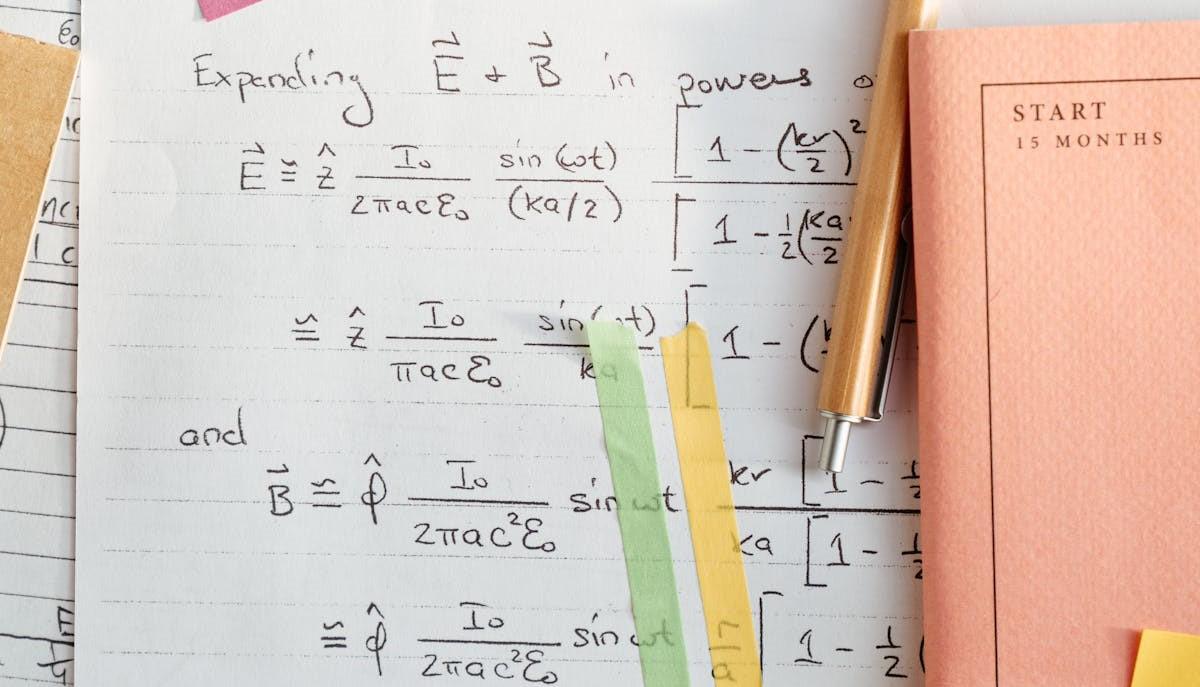 Expanding E⃗ + B⃗ in powers
E⃗ ≅ ẑ I₀/(2πacε₀) sin(ωt)/(ka/2) [1 - (kr/2)² / [1 - ½(ka/2
≅ ẑ I₀/(πacε₀) sin(ωt)/ka [1 - (
and
B⃗ ≅ φ̂ I₀/(2πac²ε₀) sin ωt kr [1 - ½ / ka [1 - ½
≅ φ̂ I₀/(2πac²ε₀) sin ωt r/a [1 - ½(
START
15 MONTHS